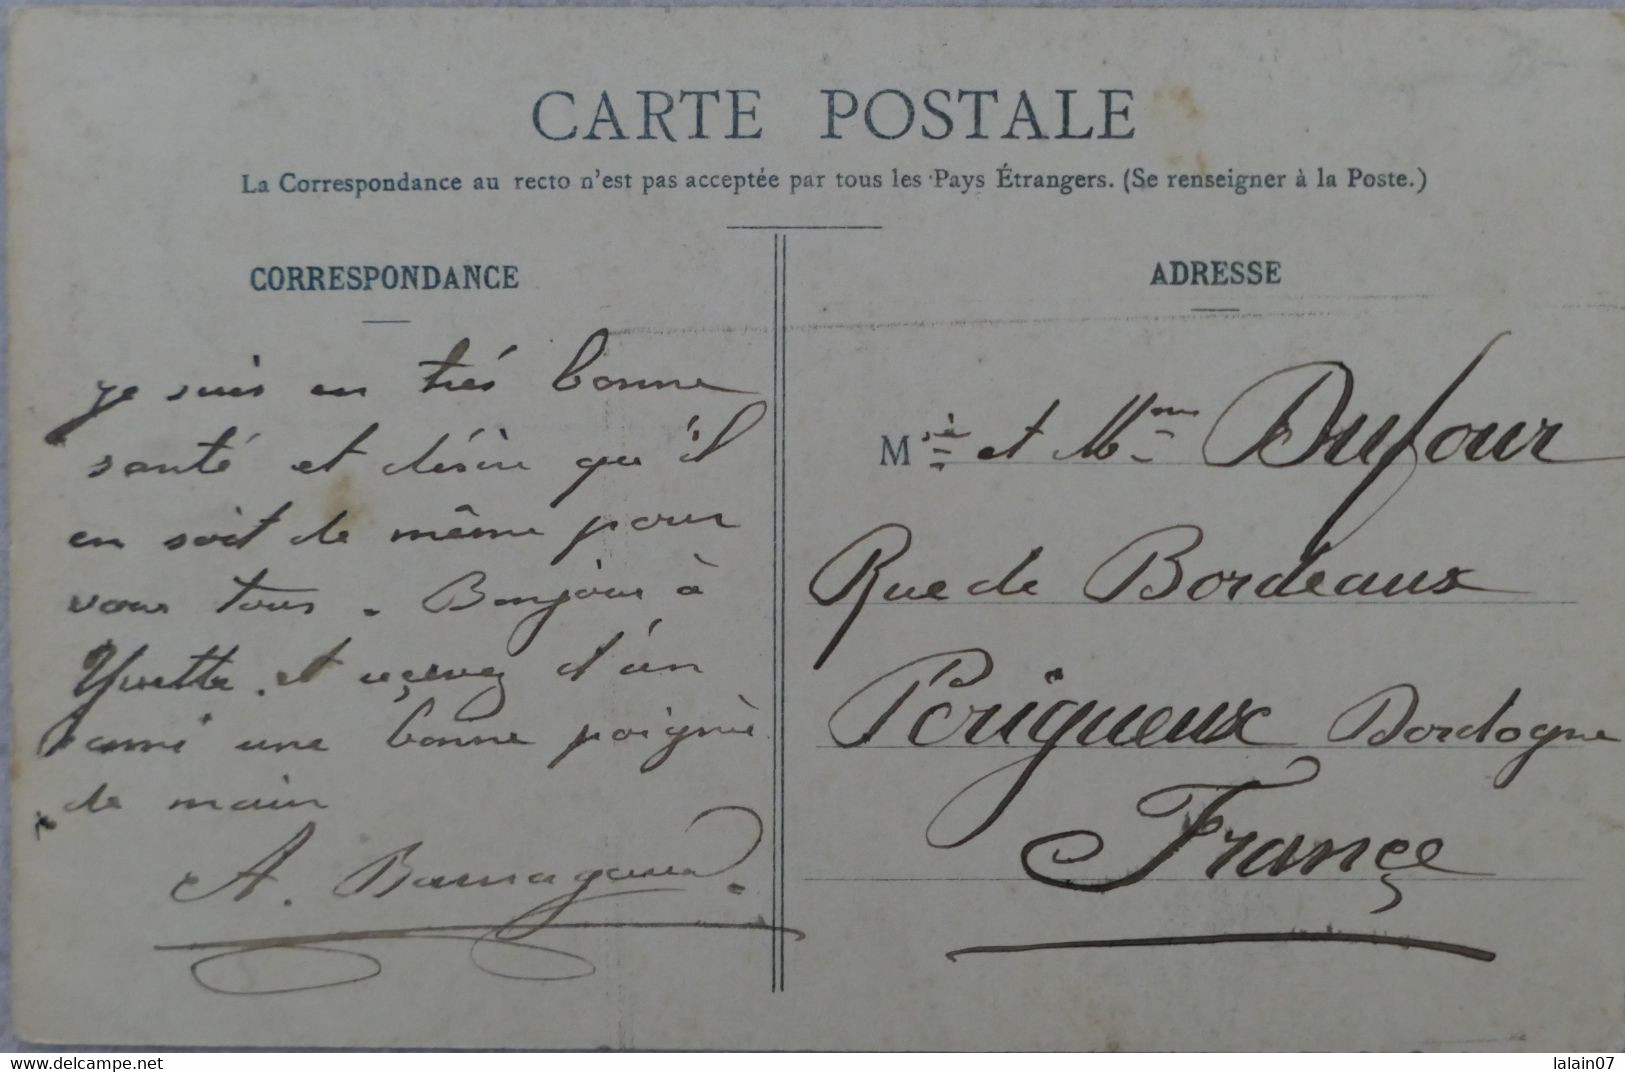 CARTE POSTALE
La Correspondance au recto n'est pas acceptée par tous les Pays Étrangers. (Se renseigner à la Poste.)
CORRESPONDANCE
je suis en très bonne
santé et désire qu'il
en soit de même pour
vous tous. Bonjour à
Yvette. et reçevez d'un
ami une bonne poignée
de main
A.
ADRESSE
Mr et Mme Dufour
Rue de Bordeaux
Périgueux Dordogne
Françe
www.delcampe.net
lalain07